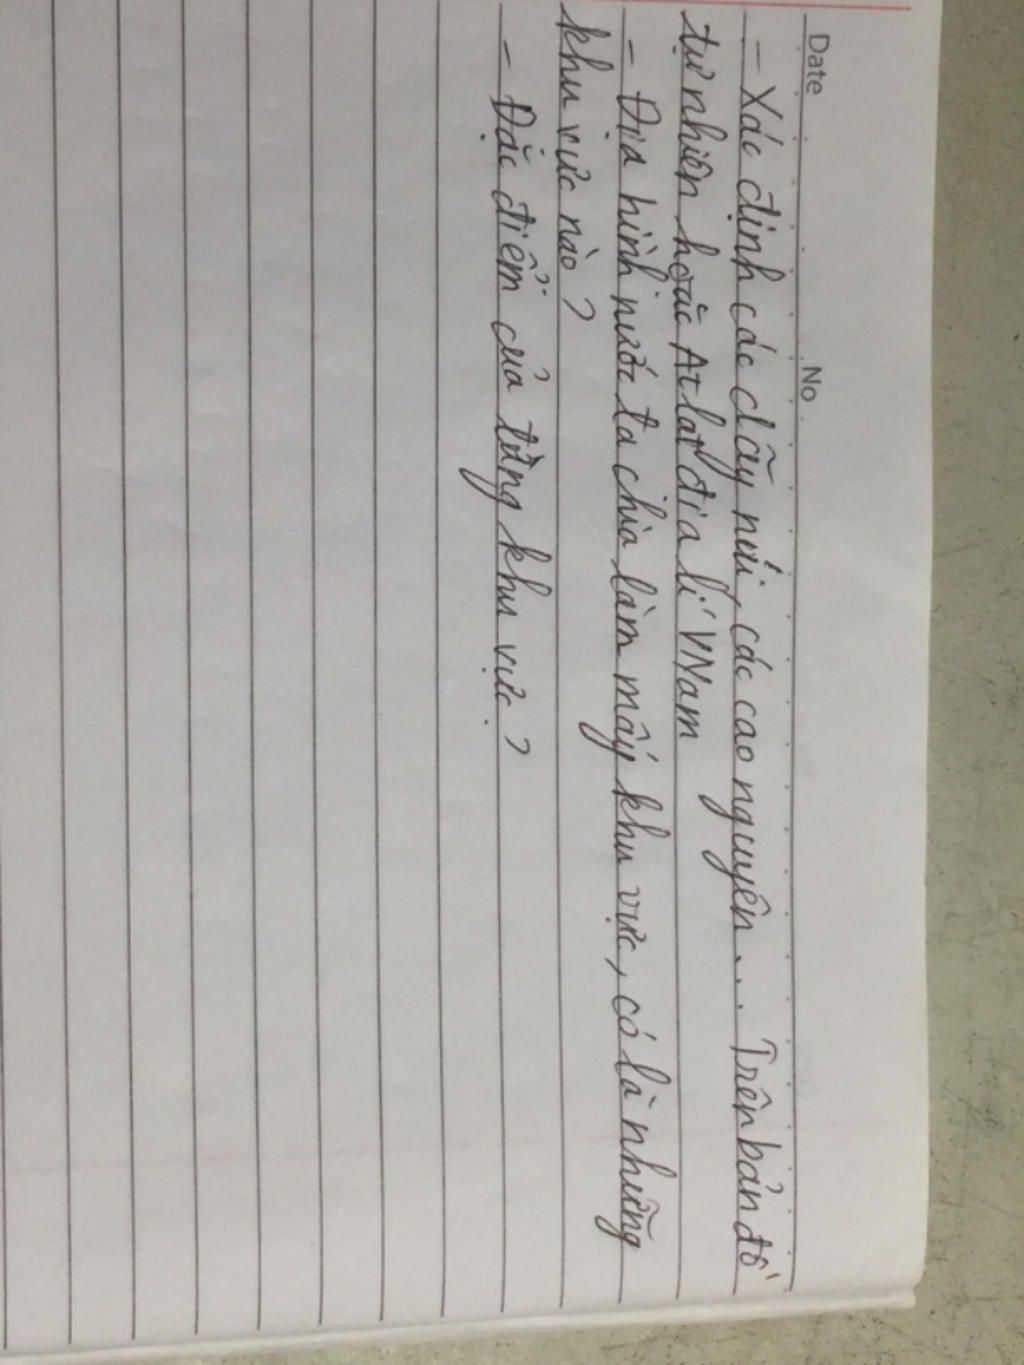 Date No
- Xác định các dãy núi, các cao nguyên... Trên bản đồ
tự nhiên hoặc Atlat địa lí VNam
- Địa hình nước ta chia làm mấy khu vực, có là những
khu vực nào?
- Đặc điểm của từng khu vực?